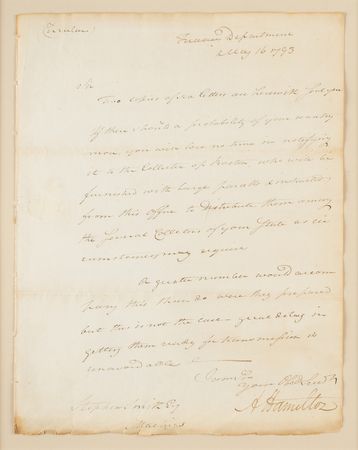 (Circular)
Treasury Department
May 16 1793
Sir
Two copies of a letter are herewith sent you
If there should a probability of your
more you will lose no time in notifying
it to the Collector of Boston who will be
furnished with large parcels &
from this Office to distribute them among
the several Collectors of your State as cir
cumstances may require
A greater number would accom
pany this than do were they prepared
but this is not the case - great delay in
getting them ready for transmission is
unavoidable
Your
A Hamilton
Stephen Smith Esq
Machias